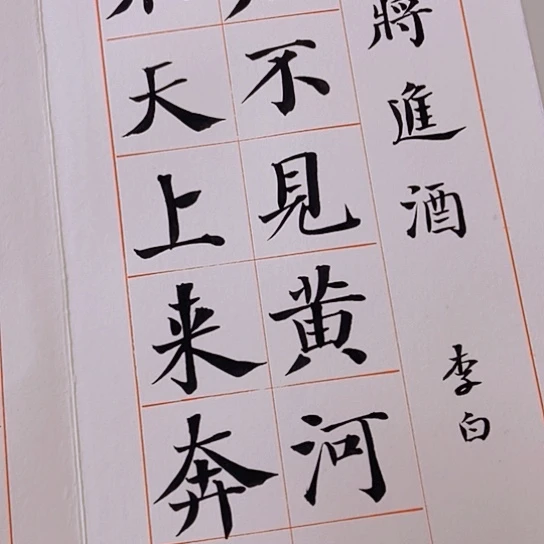 將進酒
李白
不見黄河
天上来奔